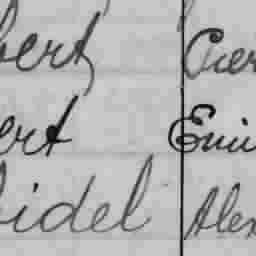 bert Pier
ert Emi
idel Alex